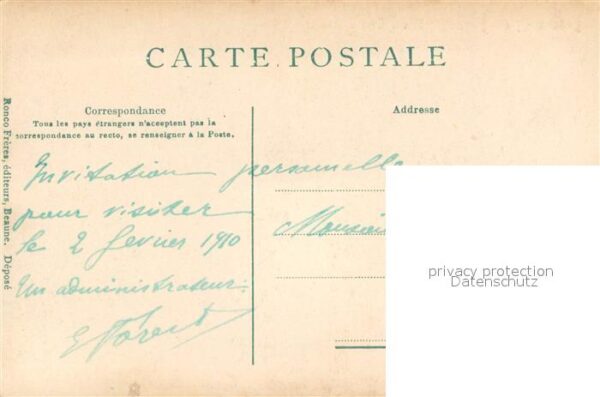 CARTE POSTALE
Correspondance
Tous les pays étrangers n'acceptent pas la
correspondance au recto, se renseigner à la Poste.
Adresse
Ronco Frères, éditeurs, Beaune. Déposé
Invitation personnelle
pour visiter
le 2 fevrier 1910
Un administrateur:
Monsieur
privacy protection
Datenschutz